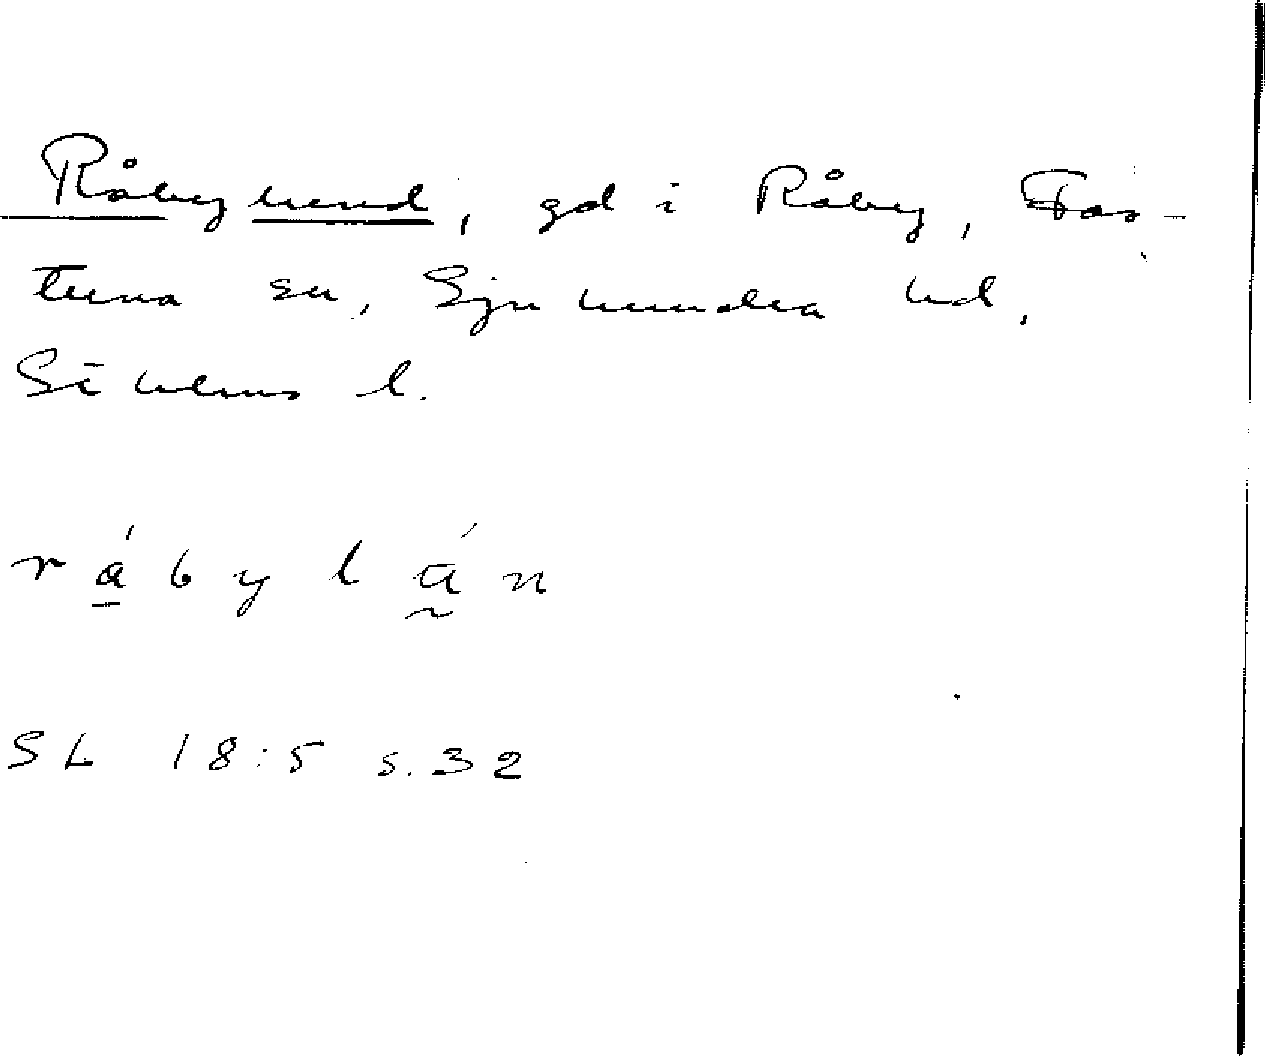 Råbylund, gd i Råby, Fas-
terna sn, Sjuhundra hd,
Sthlms l.
r á̱ b y l á̰ n
SL 18:5 s.32